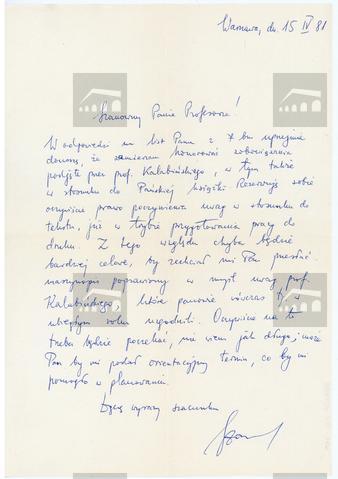 Warszawa, dn. 15 IV 81
Szanowny Panie Profesorze!
W odpowiedzi na list Pana z 7 bm uprzejmie
donoszę, że zamierzam honorować zobowiązania
podjęte przez prof. Kałubińskiego, w tym także
w stosunku do Pańskiej książki. Rezerwuję sobie
oczywiście prawo poczynienia uwag w stosunku do
tekstu, już w trybie przygotowania pracy do
druku. Z tego względu chyba będzie
bardziej celowe, by zechciał mi Pan przesłać
maszynopis poprawiony w myśl uwag prof.
Kałubińskiego, które panowie wówczas tj. w
ubiegłym roku uzgodnili. Oczywiście na to
trzeba będzie poczekać, nie wiem jak długo, może
Pan by mi podał orientacyjny termin, co by mi
pomogło w planowaniu.
Łączę wyrazy szacunku